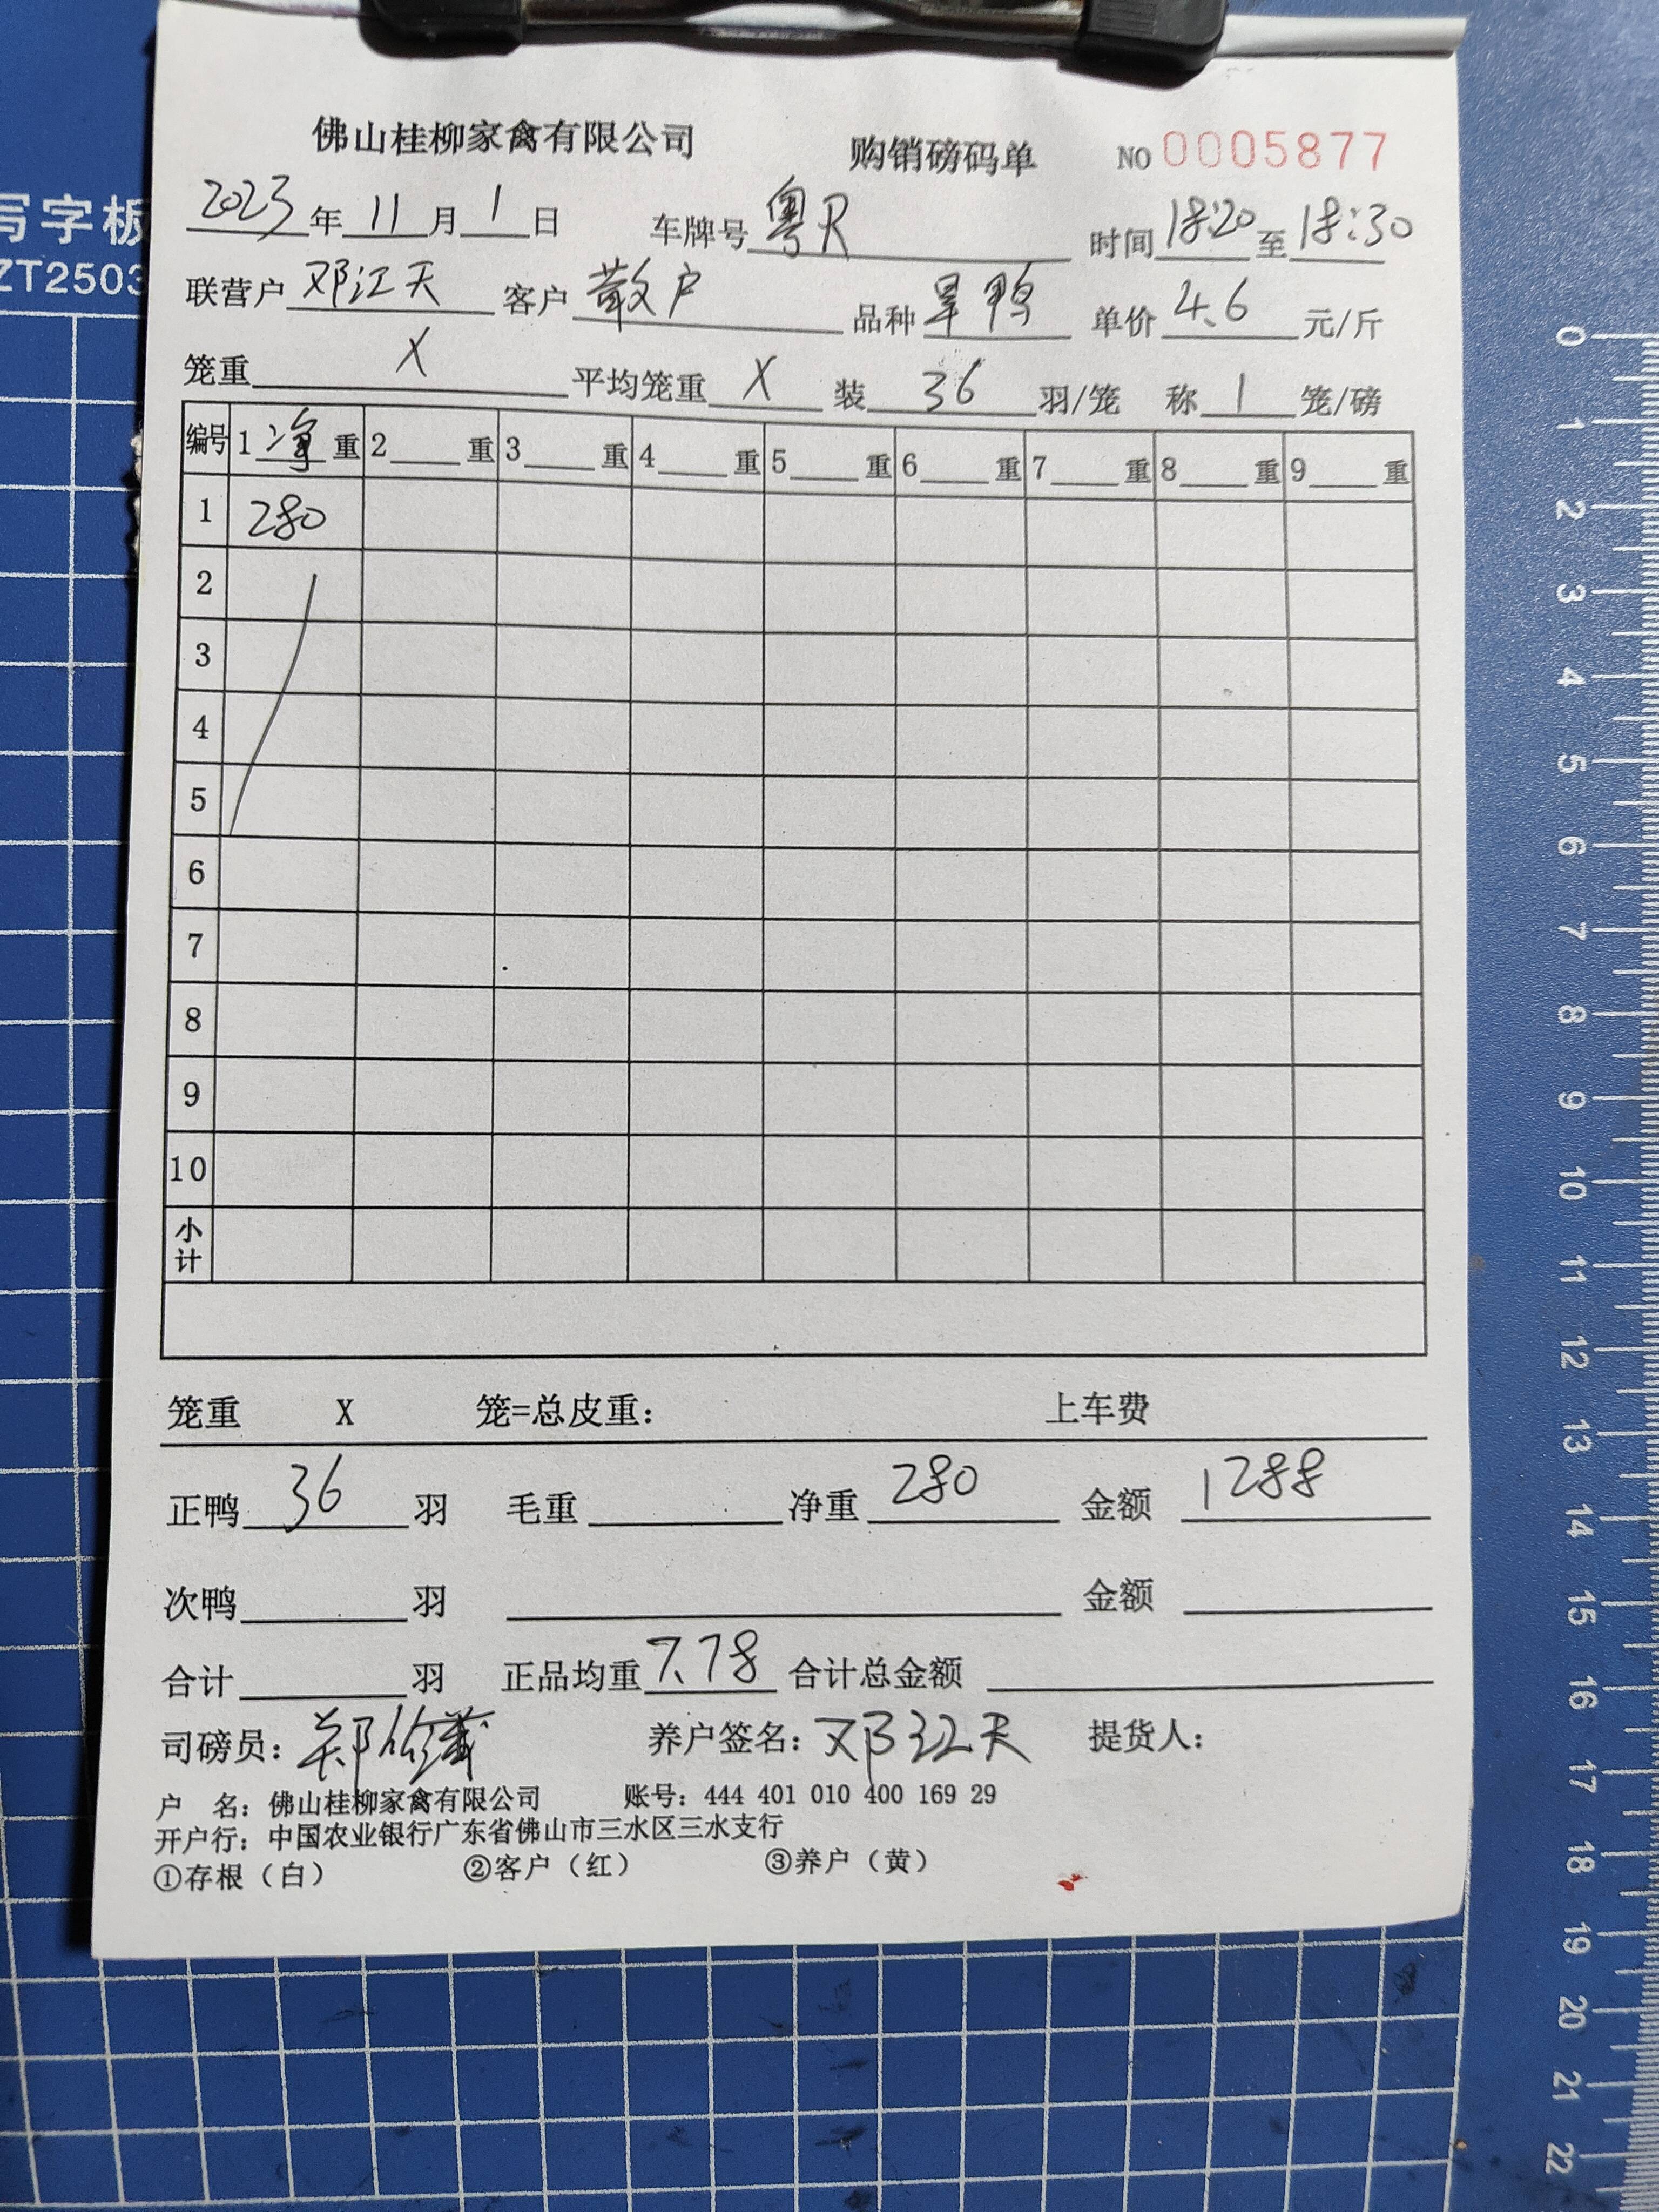 佛山桂柳家禽有限公司 购销磅码单 NO 0005877
2023年11月1日 车牌号 粤R 时间 18:20 至 18:30
联营户 邓江天 客户 散户 品种 旱鸭 单价 4.6 元/斤
笼重 X 平均笼重 X 装 36 羽/笼 称 1 笼/磅
编号 1 净 重 2 重 3 重 4 重 5 重 6 重 7 重 8 重 9 重
1 280
2
3
4
5
6
7
8
9
10
小计
笼重 X 笼=总皮重: 上车费
正鸭 36 羽 毛重 净重 280 金额 1288
次鸭 羽 金额
合计 羽 正品均重 7.78 合计总金额
司磅员: 养户签名: 邓江天 提货人:
户 名: 佛山桂柳家禽有限公司 账号: 444 401 010 400 169 29
开户行: 中国农业银行广东省佛山市三水区三水支行
①存根（白） ②客户（红） ③养户（黄）
写字板
ZT2503
0
1
2
3
4
5
6
7
8
9
10
11
12
13
14
15
16
17
18
19
20
21
22